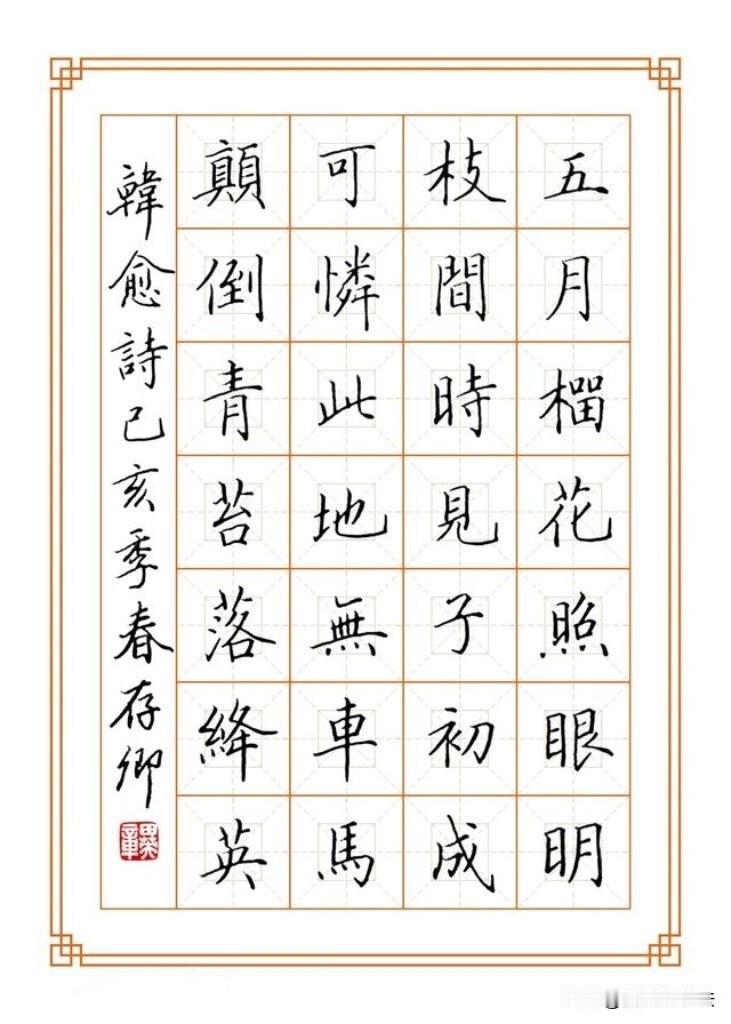 五月榴花照眼明
枝間時見子初成
可憐此地無車馬
顛倒青苔落絳英
韓愈詩己亥季春存卿